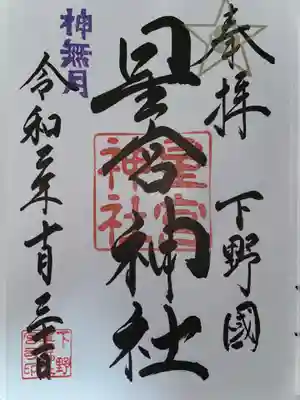 奉拝 下野國
星宮神社
星宮神社
神無月
令和二年十月三十一日